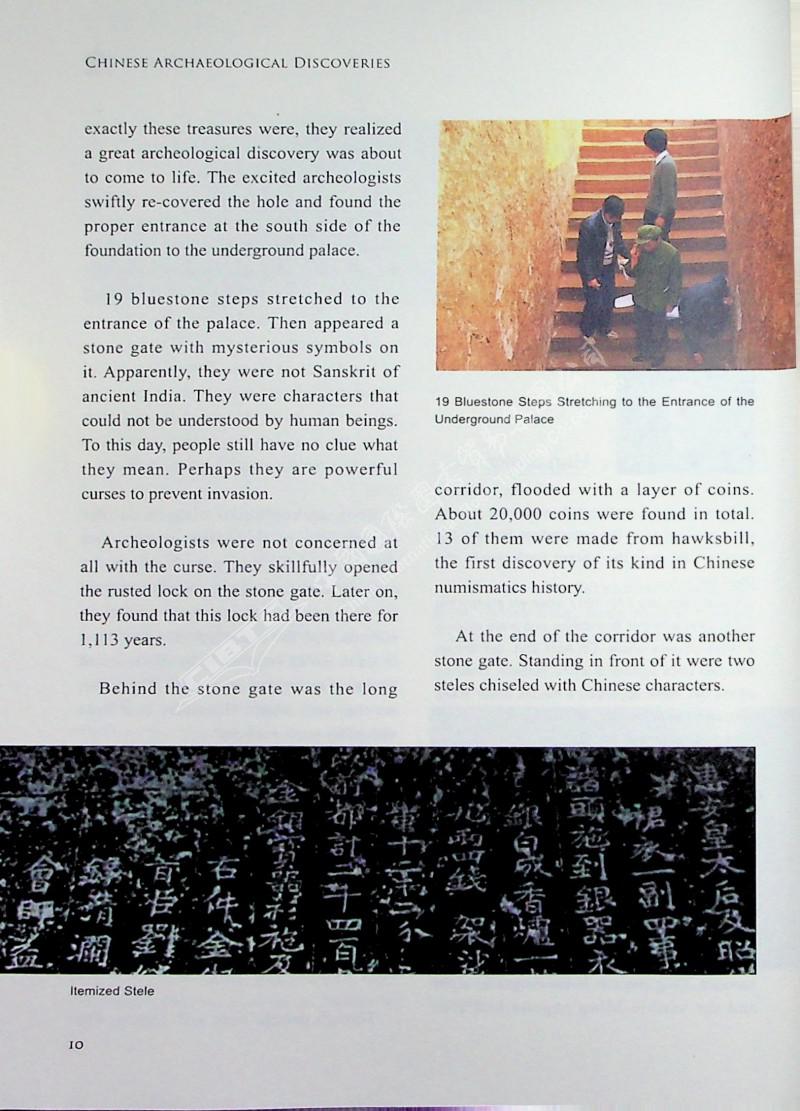 CHINESE ARCHAEOLOGICAL DISCOVERIES
exactly these treasures were, they realized
a great archeological discovery was about
to come to life. The excited archeologists
swiftly re-covered the hole and found the
proper entrance at the south side of the
foundation to the underground palace.
19 bluestone steps stretched to the
entrance of the palace. Then appeared a
stone gate with mysterious symbols on
it. Apparently, they were not Sanskrit of
ancient India. They were characters that
could not be understood by human beings.
To this day, people still have no clue what
they mean. Perhaps they are powerful
curses to prevent invasion.
Archeologists were not concerned at
all with the curse. They skillfully opened
the rusted lock on the stone gate. Later on,
they found that this lock had been there for
1,113 years.
Behind the stone gate was the long
19 Bluestone Steps Stretching to the Entrance of the
Underground Palace
corridor, flooded with a layer of coins.
About 20,000 coins were found in total.
13 of them were made from hawksbill,
the first discovery of its kind in Chinese
numismatics history.
At the end of the corridor was another
stone gate. Standing in front of it were two
steles chiseled with Chinese characters.
惠安皇太后及昭
裙衣一副四事
諸頭施到銀器衣
銀白成香爐一
兩四錢 袈裟
前都計二千四百
右件金
會師益
Itemized Stele
10
CIBTC